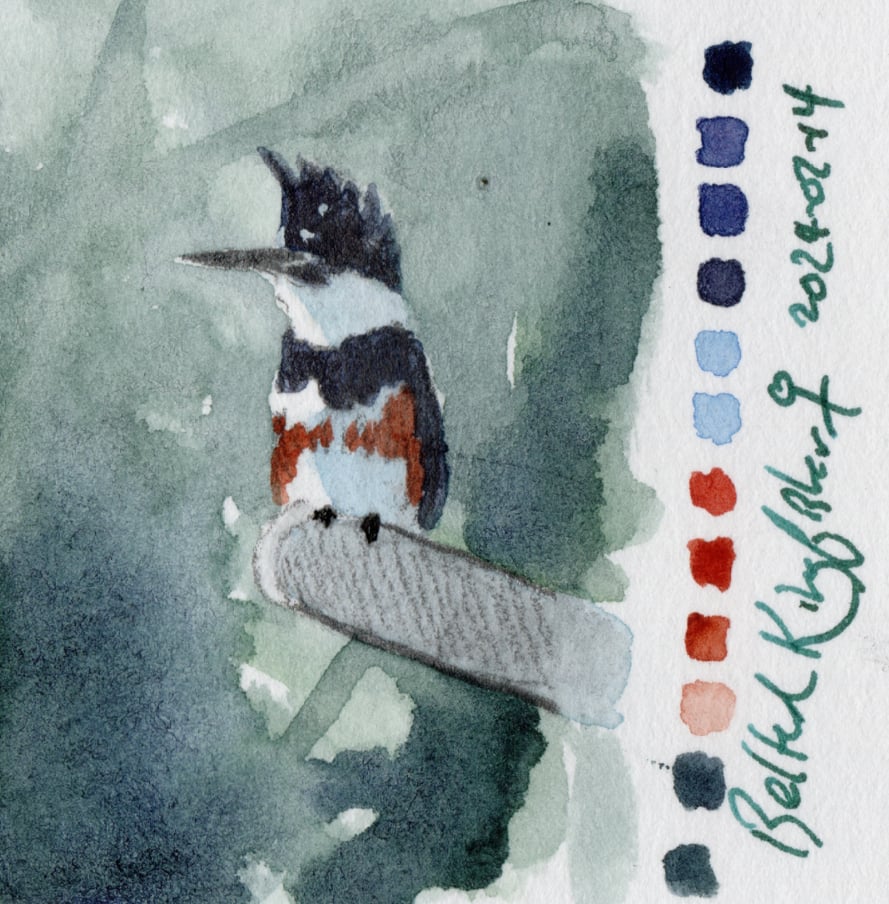 Belted Kingfisher ♀ 2024-02-14